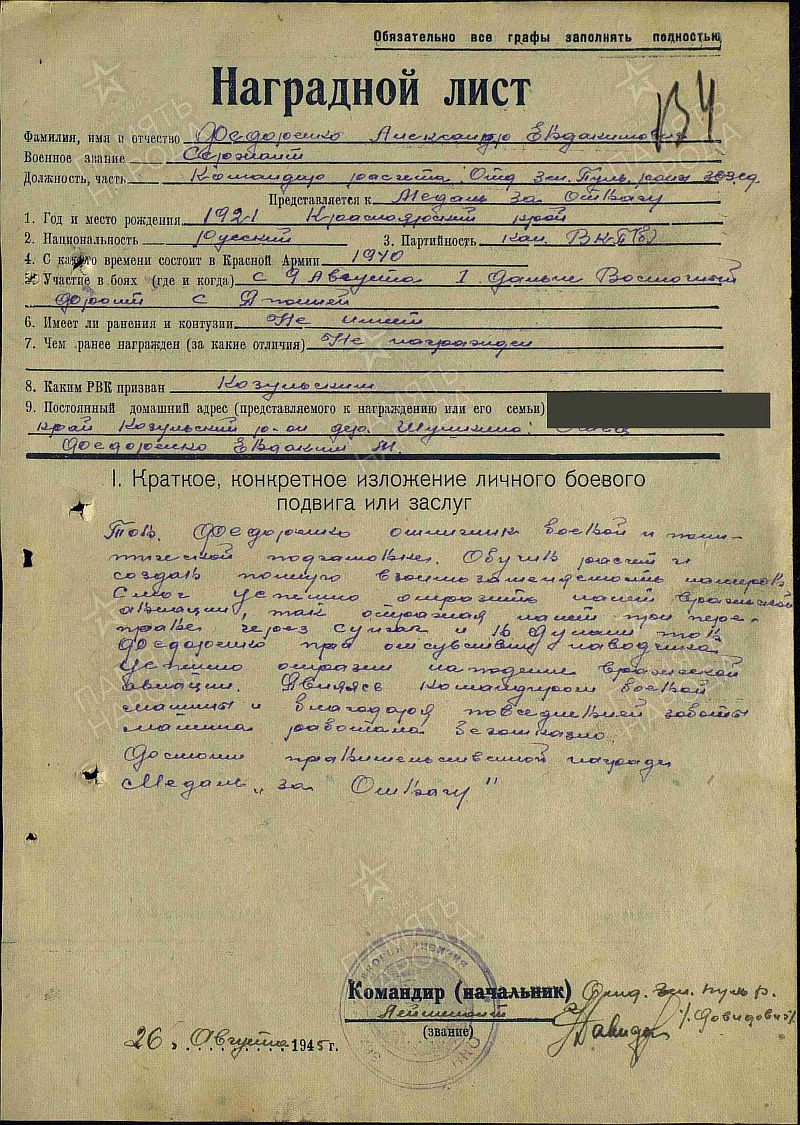 Обязательно все графы заполнять полностью
134
Наградной лист
Фамилия, имя и отчество Федоренко Александр Евдокимович
Военное звание Сержант
Должность, часть Командир расчета Отд зен. Пуль роты 363 сд
Представляется к Медаль за Отвагу
1. Год и место рождения 1921 Красноярский край
2. Национальность Русский 3. Партийность кан. ВКП(б)
4. С какого времени состоит в Красной Армии 1940
5. Участие в боях (где и когда) С 9 Августа 1 Дальне Восточный
фронт с Японией
6. Имеет ли ранения и контузии Не имеет
7. Чем ранее награжден (за какие отличия) Не награжден
8. Каким РВК призван Козульским
9. Постоянный домашний адрес (представляемого к награждению или его семьи)
край Козульский р-он дер. Шушкино: Отец
Федоренко Евдоким М.
I. Краткое, конкретное изложение личного боевого
подвига или заслуг
Тов. Федоренко отличник боевой и поли-
тической подготовке. Обучив расчет и
создав полную взоимозаменяемость номеров
Смог успешно отразить налет вражеской
авиации, так отражая налет при пере-
праве через Сунгач и в Фугдин тов
Федоренко при отсуствии наводчика
успешно отразил нападение вражеской
авиации. Являясь командиром боевой
машины и благодаря повседневней заботы
машина работала безотказно.
Достоин правительственной награды
Медаль „за Отвагу"
Командир (начальник) Отд. зен. пуль р.
Лейтенант /Довидович/
(звание)
26 „ Августа 1945 г.